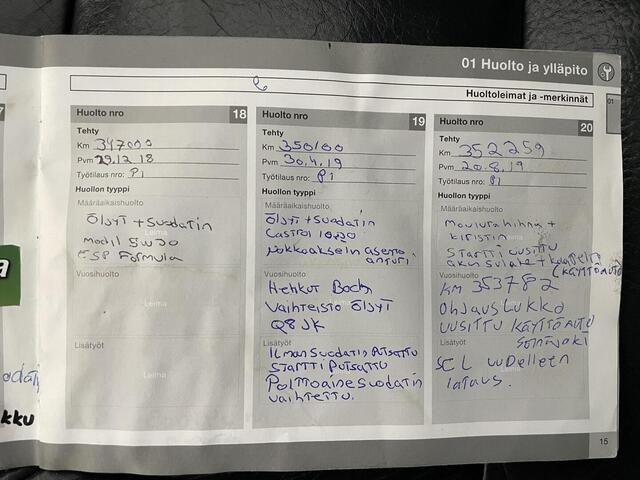 01 Huolto ja ylläpito
01
Huoltoleimat ja -merkinnät
Huolto nro 18
Tehty
Km 347000
Pvm 29.12 18
Työtilaus nro: P1
Huollon tyyppi
Määräaikaishuolto
Öljyt + suodatin
Leima
Mobil 5W30
ESP Formula
Vuosihuolto
Leima
Lisätyöt
Leima
Huolto nro 19
Tehty
Km 350100
Pvm 30.4.19
Työtilaus nro: P1
Huollon tyyppi
Määräaikaishuolto
Öljyt + suodatin
Castrol 10W30
Nokkoakselin asento.
anturi.
Vuosihuolto
Hehkut Bosch
Vaihteisto Öljyt
Q8
Lisätyöt
Ilmansuodatin putsattu
Startti putsattu
Polttoainesuodatin
vaihtettu.
Huolto nro 20
Tehty
Km 352259
Pvm 20.8.19
Työtilaus nro: P1
Huollon tyyppi
Määräaikaishuolto
moniurahihna +
kiristin
Leima
Startti uusittu
akun sulake + kaapeli
(Käyttöauto
Vuosihuolto
KM 353782
Ohjauslukko
uusittu käyttöauto
Seinäjoki
Lisätyöt
SCL uudelleen
lataus.
kku
15